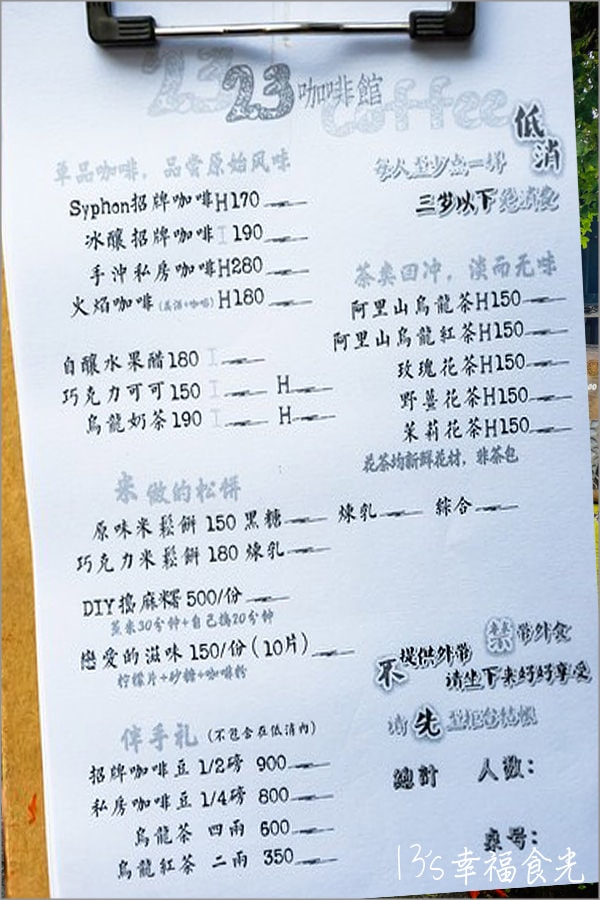 23咖啡館
Coffee
低消
每人至少点一样
三岁以下免消费
單品咖啡，品尝原始风味
Syphon招牌咖啡H170
冰釀招牌咖啡I 190
手沖私房咖啡H280
火焰咖啡(高酒+咖啡)H180
自釀水果醋180 I
巧克力可可150 I H
烏龍奶茶190 I H
茶类回冲，淡而无味
阿里山烏龍茶H150
阿里山烏龍紅茶H150
玫瑰花茶H150
野薑花茶H150
茉莉花茶H150
花茶均新鲜花材，非茶包
米做的松饼
原味米鬆餅 150 黑糖 煉乳 綜合
巧克力米鬆餅 180 煉乳
DIY搗麻糬 500/份
蒸米30分钟+自己搗20分钟
戀愛的滋味 150/份(10片)
柠檬片+砂糖+咖啡粉
禁带外食
不提供外带
请坐下来好好享受
请先至柜台结帐
伴手礼(不包含在低消內)
招牌咖啡豆 1/2磅 900
私房咖啡豆 1/4磅 800
烏龍茶 四兩 600
烏龍紅茶 二兩 350
總計 人數：
桌号：
13's幸福食光